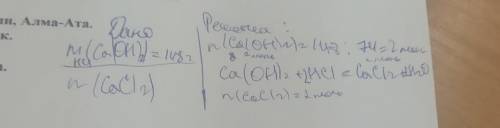 ин, Алма-Ата.
к.
Дано
m(Ca(OH)₂)=148г
HCl
n(CaCl₂)
Решение :
n(Ca(OH)₂)=148 : 74=2моль
2 моль
Ca(OH)₂+2HCl=CaCl₂+2H₂O
n(CaCl₂)=2моль